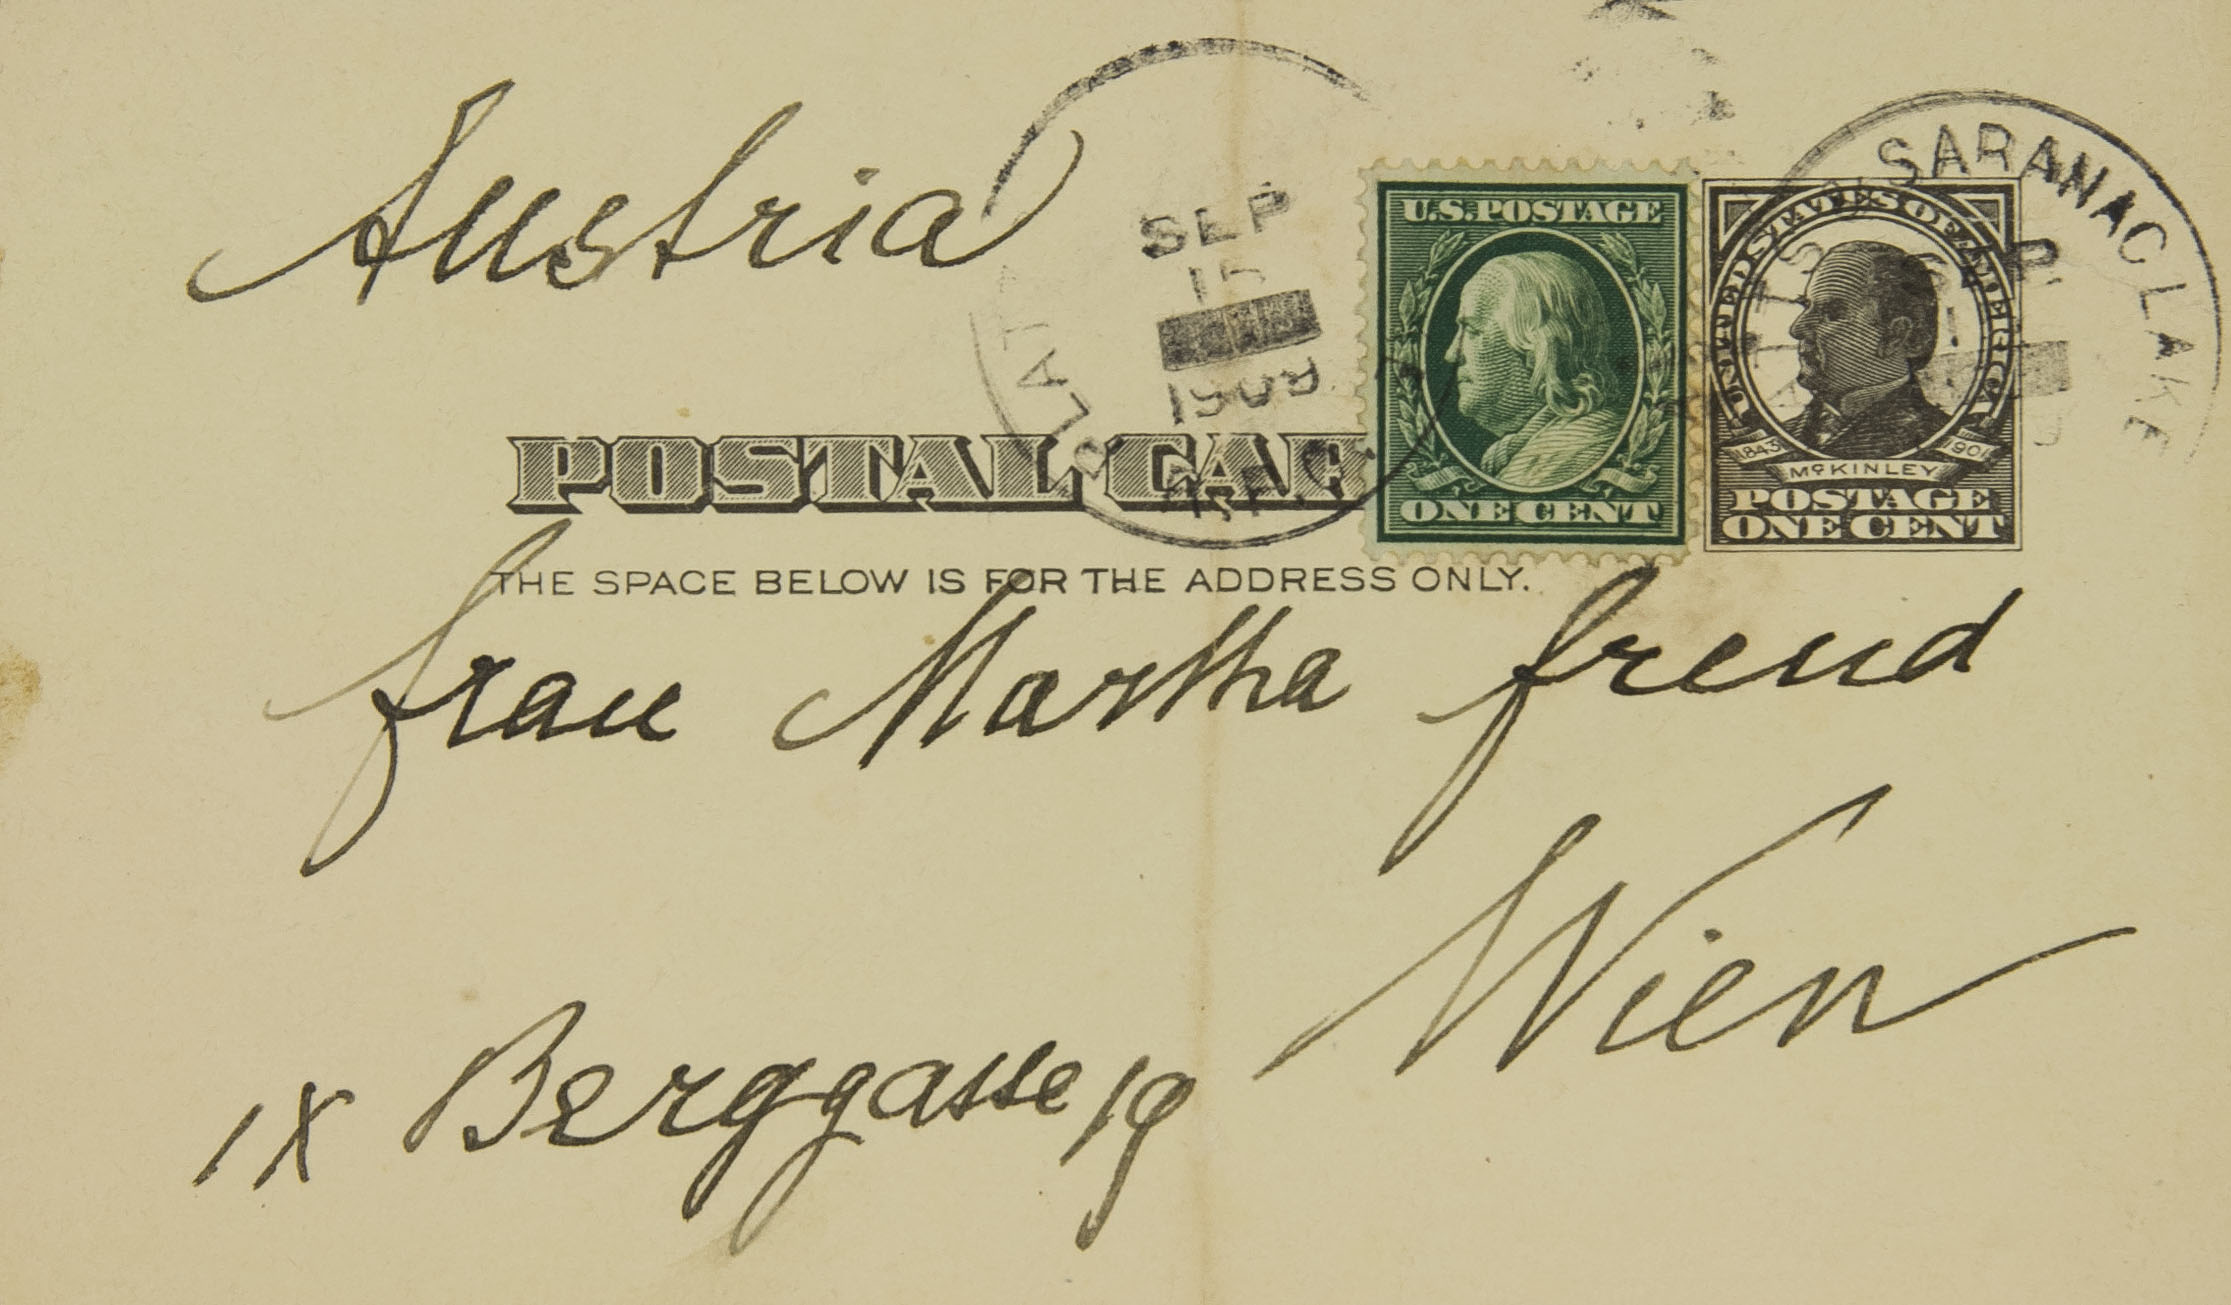 Austria
SEP
15
1909
SARANAC LAKE
U.S. POSTAGE
ONE CENT
UNITED STATES OF AMERICA
1843 1901
McKINLEY
POSTAGE
ONE CENT
POSTAL CAR
THE SPACE BELOW IS FOR THE ADDRESS ONLY.
Frau Martha Freud
Wien
IX Berggasse 19